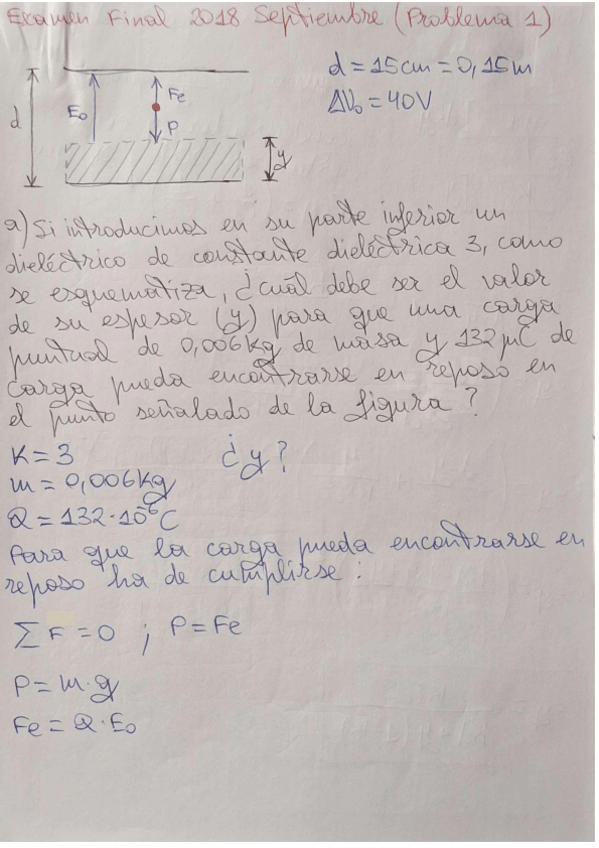 Examen Final 2018 Septiembre (Problema 1)
d = 15cm = 0,15m
ΔV₀ = 40V
d
E₀
Fe
P
y
a) Si introducimos en su parte inferior un
dieléctrico de constante dieléctrica 3, como
se esquematiza, ¿cuál debe ser el valor
de su espesor (y) para que una carga
puntual de 0,006kg de masa y 132 μC de
carga pueda encontrarse en reposo en
el punto señalado de la figura?
K = 3 ¿y?
m = 0,006kg
Q = 132·10⁻⁶C
Para que la carga pueda encontrarse en
reposo ha de cumplirse:
∑F = 0 ; P = Fe
P = m·g
Fe = Q·E₀